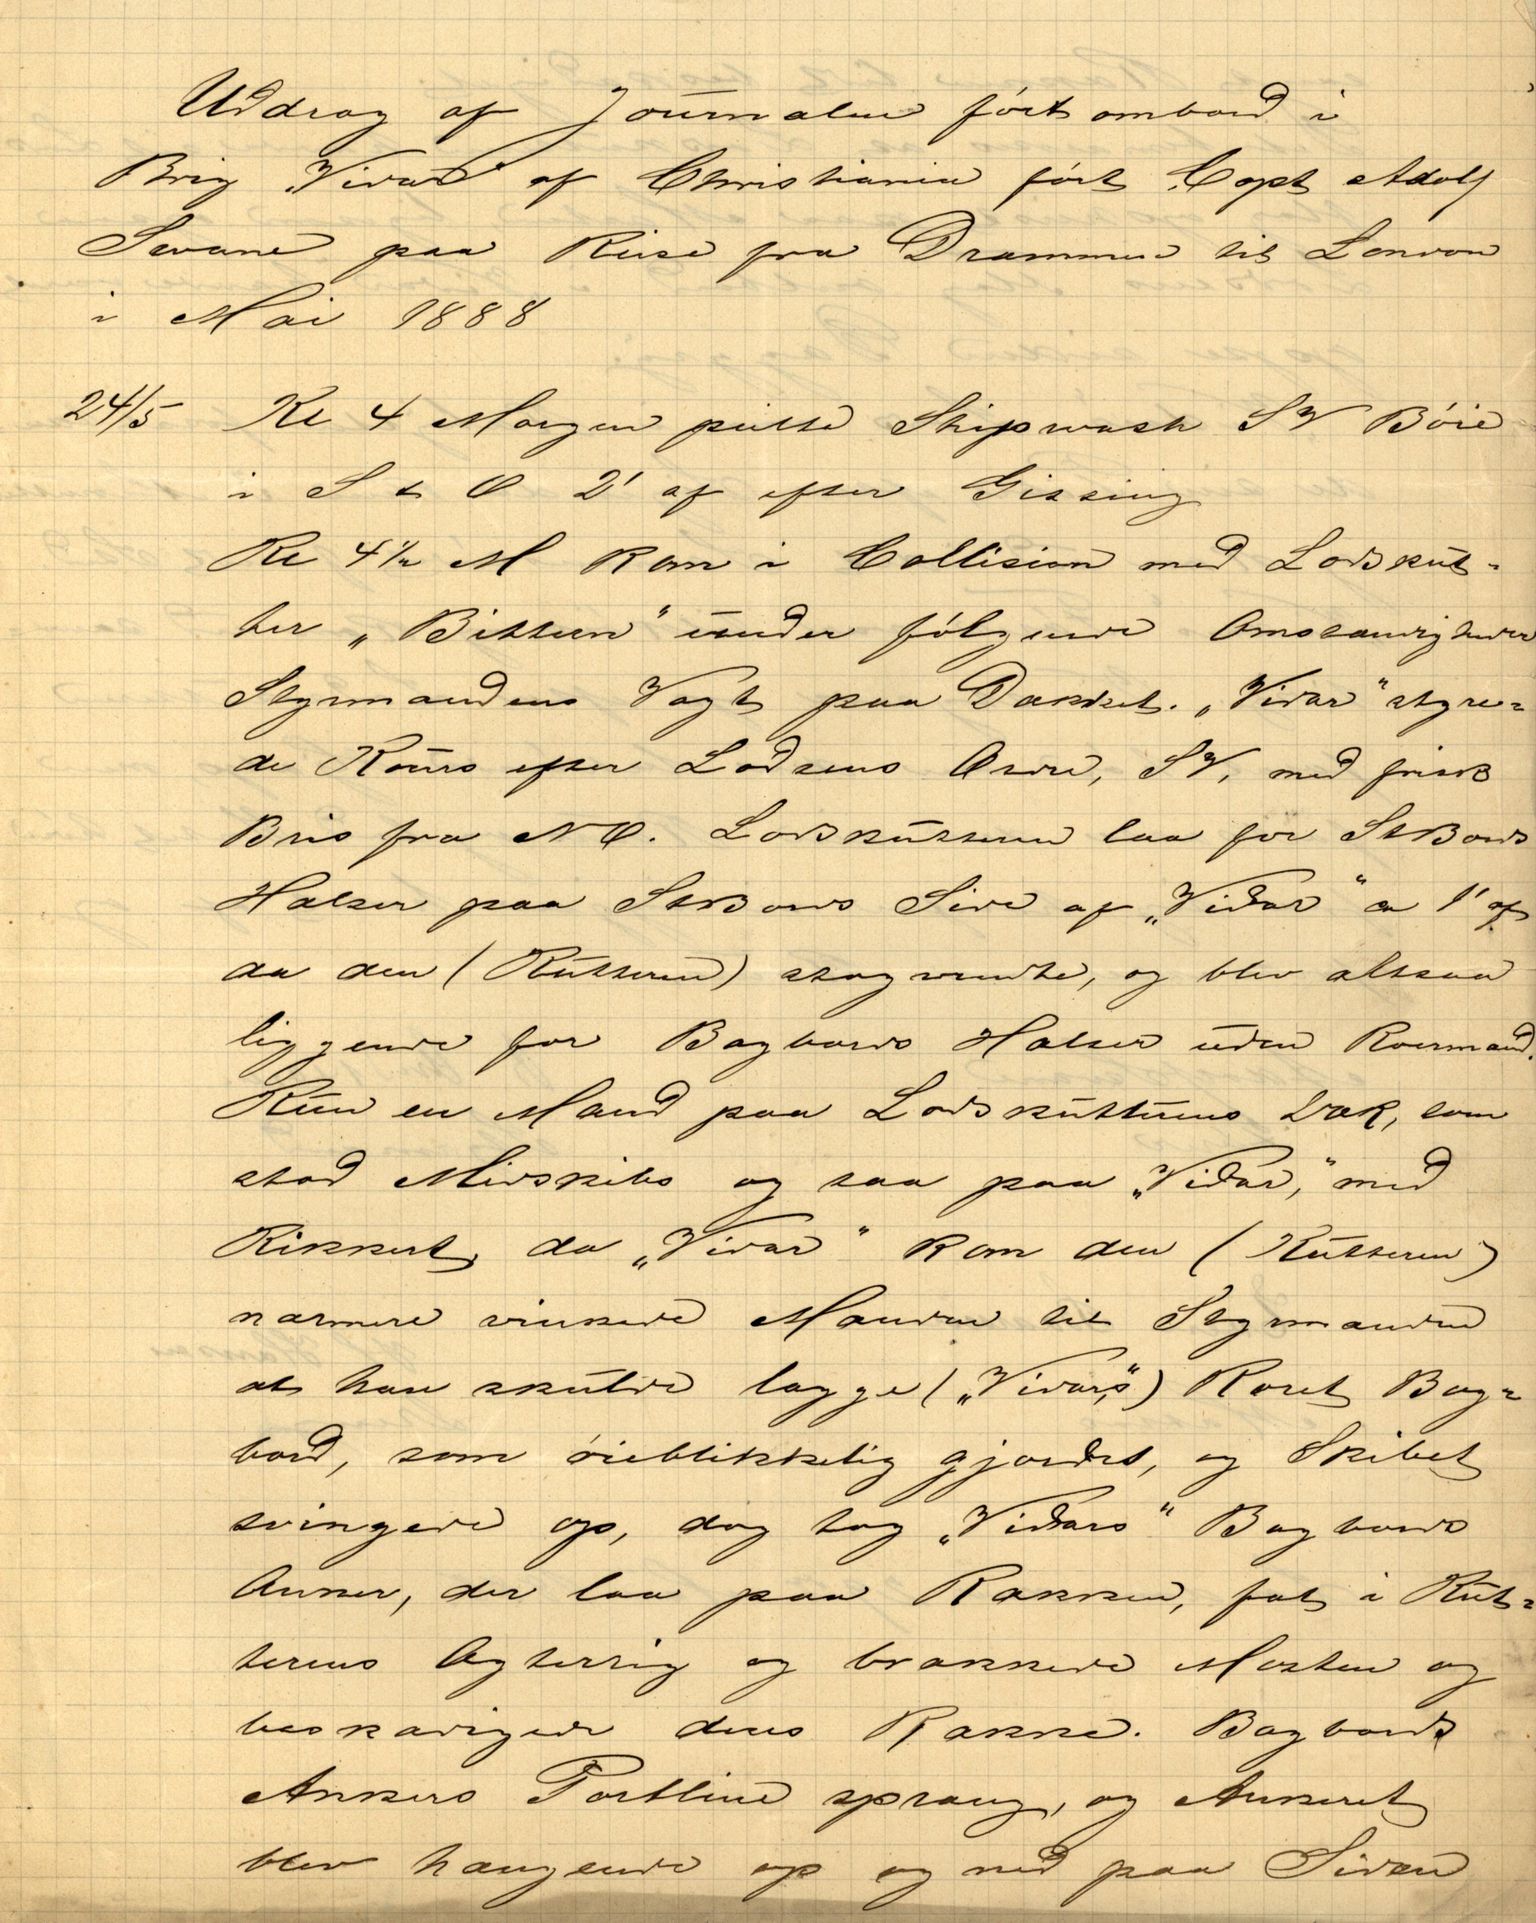 Uddrag af Journalen ført ombord i
Brig "Vidar" af Christiania ført Capt Adolf
Svane paa Reise fra Drammen til London
i Mai 1888
24/5 Kl 4 Morgen peilte Shipwash SV Bøie
i S t O 2' af efter Gissing
Kl 4½ M kom i Collision med Lodskut-
ter „Bittern" under følgende Omstændigheder
Styrmandens Vagt paa Dækket. „Vidar" styre-
de Kours efter Lodsens Ordre, SV, med frisk
Bris fra NO. Lodskutteren laa for StBords
Halser paa StBords Side af „Vidar" ca 1' af
da den (Kutteren) stagvendte, og blev altsaa
liggende for Bagbords Halser uden Roermand.
Kun en Mand paa Lodskutterens Dæk, som
stod Midskibs og saa paa „Vidar," med
Kikkert, da „Vidar" kom den (Kutteren)
nærmere vinkede Manden til Styrmanden
at han skulde lægge („Vidars") Roret Bag-
bord, som øieblikkelig gjordes, og Skibet
svingede op, dog tog „Vidars" Bagbords
Anker, der laa paa Rækken, fat i Kut-
terens Agterrig og brækkede Masten og
beskadigede dens Række. Bagbords
Ankers Portline sprang, og Ankeret
blev hængende op og ned paa Siden